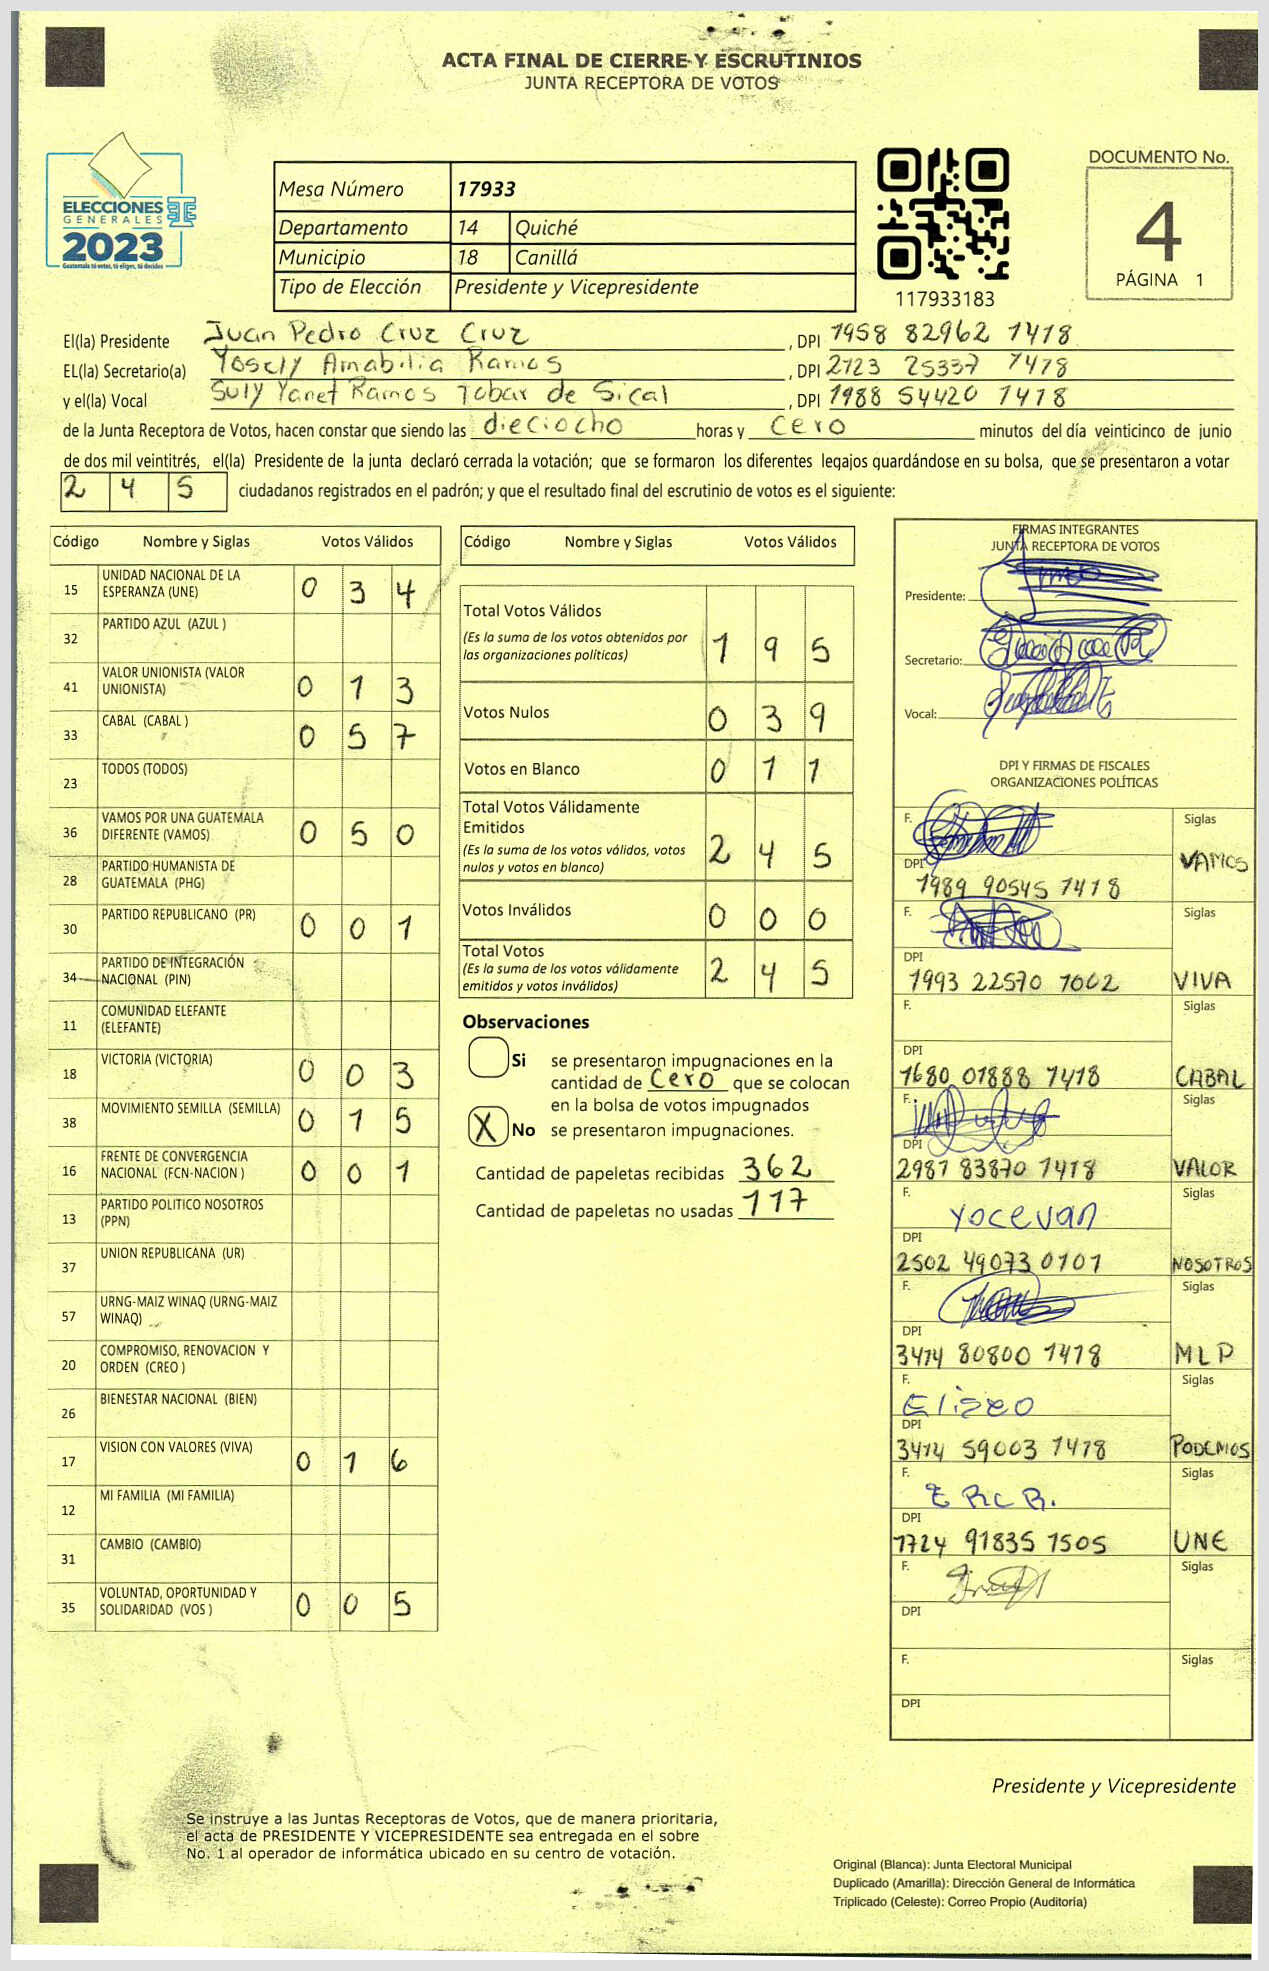 ACTA FINAL DE CIERRE Y ESCRUTINIOS
JUNTA RECEPTORA DE VOTOS
ELECCIONES
GENERALES
2023
Guatemala tú votas, tú eliges, tú decides
Mesa Número 17933
Departamento 14 Quiché
Municipio 18 Canillá
Tipo de Elección Presidente y Vicepresidente
117933183
DOCUMENTO No.
4
PÁGINA 1
El(la) Presidente Juan Pedro Cruz Cruz, DPI 1958 82962 1418
EL(la) Secretario(a) Yosely Amabilia Ramos, DPI 2123 25337 1418
y el(la) Vocal Suly Yanet Ramos Tobar de Sical, DPI 1988 54420 1418
de la Junta Receptora de Votos, hacen constar que siendo las dieciocho horas y cero minutos del día veinticinco de junio
de dos mil veintitrés, el(la) Presidente de la junta declaró cerrada la votación; que se formaron los diferentes legajos guardándose en su bolsa, que se presentaron a votar
2 4 5 ciudadanos registrados en el padrón; y que el resultado final del escrutinio de votos es el siguiente:
Código Nombre y Siglas Votos Válidos
15 UNIDAD NACIONAL DE LA ESPERANZA (UNE) 0 3 4
32 PARTIDO AZUL (AZUL )
41 VALOR UNIONISTA (VALOR UNIONISTA) 0 1 3
33 CABAL (CABAL ) 0 5 7
23 TODOS (TODOS)
36 VAMOS POR UNA GUATEMALA DIFERENTE (VAMOS) 0 5 0
28 PARTIDO HUMANISTA DE GUATEMALA (PHG)
30 PARTIDO REPUBLICANO (PR) 0 0 1
34 PARTIDO DE INTEGRACIÓN NACIONAL (PIN)
11 COMUNIDAD ELEFANTE (ELEFANTE)
18 VICTORIA (VICTORIA) 0 0 3
38 MOVIMIENTO SEMILLA (SEMILLA) 0 1 5
16 FRENTE DE CONVERGENCIA NACIONAL (FCN-NACION ) 0 0 1
13 PARTIDO POLITICO NOSOTROS (PPN)
37 UNION REPUBLICANA (UR)
57 URNG-MAIZ WINAQ (URNG-MAIZ WINAQ)
20 COMPROMISO, RENOVACION Y ORDEN (CREO )
26 BIENESTAR NACIONAL (BIEN)
17 VISION CON VALORES (VIVA) 0 1 6
12 MI FAMILIA (MI FAMILIA)
31 CAMBIO (CAMBIO)
35 VOLUNTAD, OPORTUNIDAD Y SOLIDARIDAD (VOS ) 0 0 5
Código Nombre y Siglas Votos Válidos
Total Votos Válidos
(Es la suma de los votos obtenidos por
las organizaciones políticas) 1 9 5
Votos Nulos 0 3 9
Votos en Blanco 0 1 1
Total Votos Válidamente
Emitidos
(Es la suma de los votos válidos, votos
nulos y votos en blanco) 2 4 5
Votos Inválidos 0 0 0
Total Votos
(Es la suma de los votos válidamente
emitidos y votos inválidos) 2 4 5
Observaciones
Si se presentaron impugnaciones en la
cantidad de Cero que se colocan
en la bolsa de votos impugnados
X No se presentaron impugnaciones.
Cantidad de papeletas recibidas 362
Cantidad de papeletas no usadas 117
FIRMAS INTEGRANTES
JUNTA RECEPTORA DE VOTOS
Presidente:
Secretario:
Vocal:
DPI Y FIRMAS DE FISCALES
ORGANIZACIONES POLÍTICAS
F. Siglas
DPI 1989 90545 1418 VAMOS
F. Siglas
DPI 1993 22570 1002 VIVA
F. Siglas
DPI 1680 01888 1418 CABAL
F. Siglas
DPI 2987 83870 1418 VALOR
F. Yocevan Siglas
DPI 2502 49073 0101 NOSOTROS
F. Siglas
DPI 3414 80800 1418 MLP
F. Eliseo Siglas
DPI 3414 59003 1418 PODEMOS
F. Siglas
DPI 1724 91835 1505 UNE
F. Siglas
DPI
F. Siglas
DPI
Presidente y Vicepresidente
Se instruye a las Juntas Receptoras de Votos, que de manera prioritaria,
el acta de PRESIDENTE Y VICEPRESIDENTE sea entregada en el sobre
No. 1 al operador de informática ubicado en su centro de votación.
Original (Blanca): Junta Electoral Municipal
Duplicado (Amarilla): Dirección General de Informática
Triplicado (Celeste): Correo Propio (Auditoría)